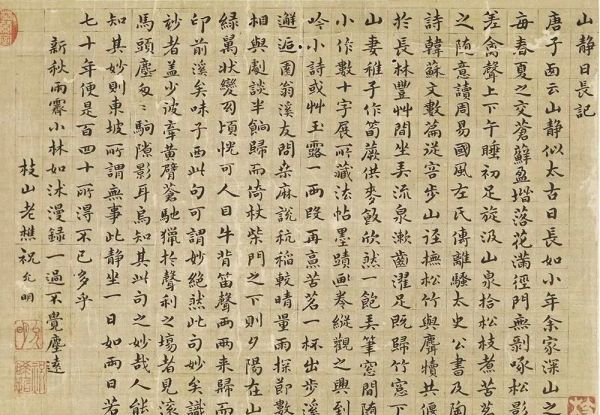 山静日長記
唐子西云山静似太古日長如小年余家深山之
每春夏之交蒼蘚盈堦落花滿徑門無剥啄松影
差禽聲上下午睡初足旋汲山泉拾松枝煮苦
之随意讀周易國風左氏傳離騷太史公書及陶
詩韓蘇文數篇從容步山逕撫松竹與麛犢共偃
於長林豐艸間坐弄流泉漱齒濯足既歸竹窓下
山妻稚子作筍蕨供麥飯欣然一飽弄筆窓間随
小作數十字展所藏法帖墨蹟畫卷縱觀之興到
吟小詩或艸玉露一兩段再烹苦茗一杯出步溪
邂逅園翁溪友問桑麻說秔稻較晴量雨探節數
相與劇談半餉歸而倚杖柴門之下則夕陽在山
緑萬狀變幻頃恍可人目牛背笛聲兩兩来歸而
印前溪矣味子西此句可謂妙絶然此句妙矣識
妙者盖少彼牽黄臂蒼馳獵於聲利之塲者見滾
馬頭塵匆匆駒隙影耳烏知其此句之妙哉人能
知其妙則東坡所謂無事此静坐一日如兩日若
七十年便是百四十所得不已多乎
新秋雨霽小林如沐漫録一過不覺塵遠
枝山老樵祝允明